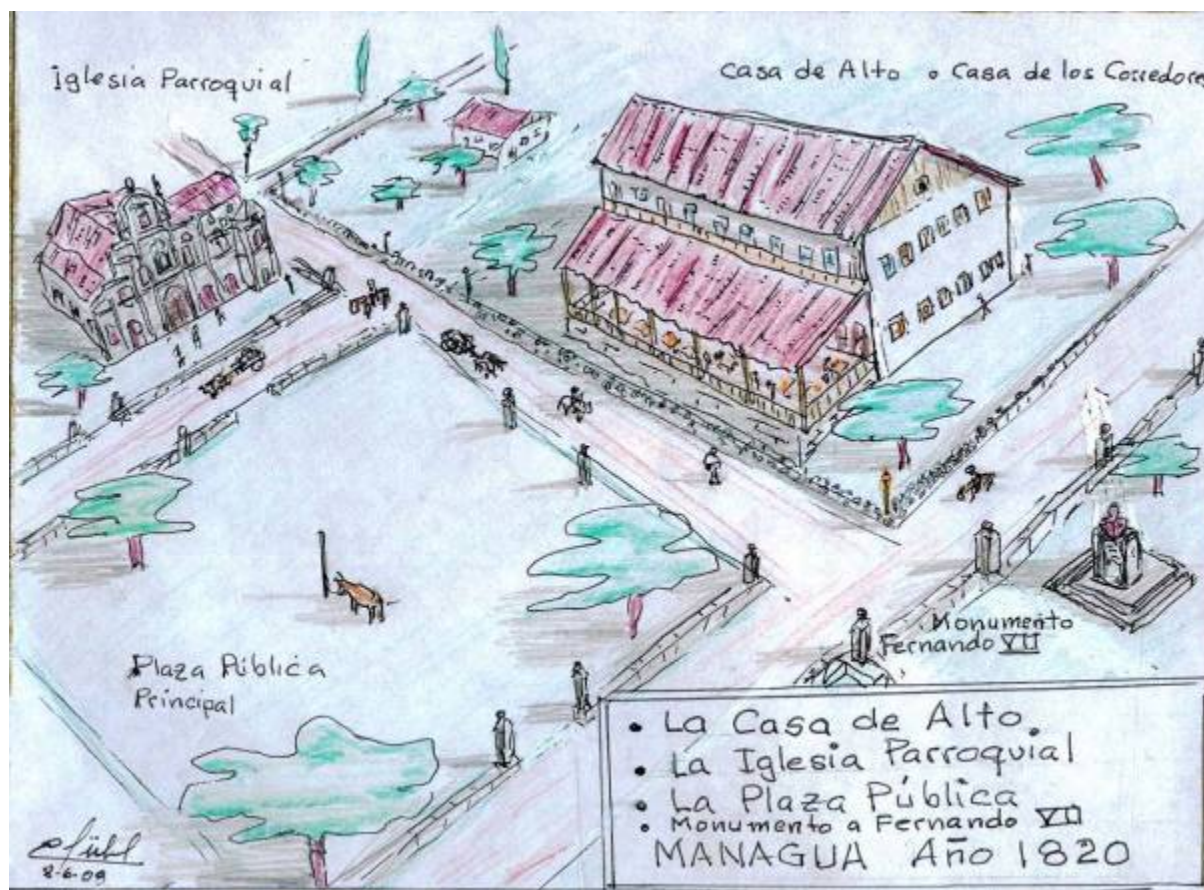 Iglesia Parroquial
Casa de Alto o Casa de los Corredore
Monumento
Fernando VII
Plaza Pública
Principal
• La Casa de Alto.
• La Iglesia Parroquial
• La Plaza Pública
• Monumento a Fernando VII
MANAGUA Año 1820
8-6-09